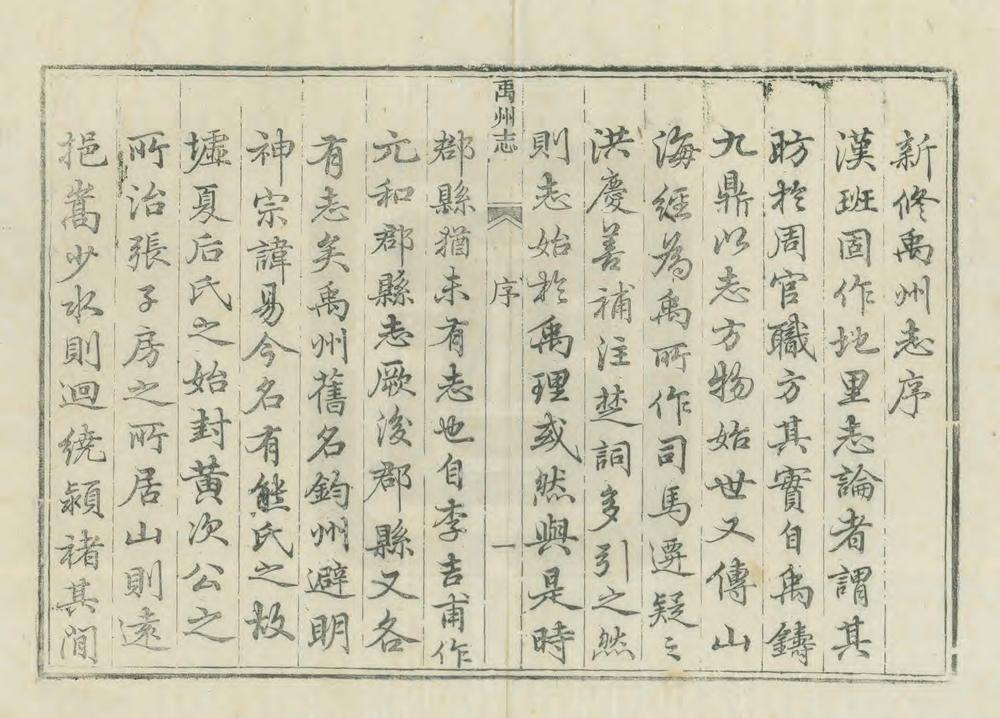 新修禹州志序
漢班固作地里志論者謂其
昉於周官職方其實自禹鑄
九鼎以志方物始世又傳山
海經為禹所作司馬遷疑之
洪慶善補注楚詞多引之然
則志始於禹理或然與是時
禹州志
序
一
郡縣猶未有志也自李吉甫作
元和郡縣志厥後郡縣又各
有志矣禹州舊名鈞州避明
神宗諱易今名有熊氏之故
墟夏后氏之始封黄次公之
所治張子房之所居山則遠
挹嵩少水則迴繞潁褚其閒